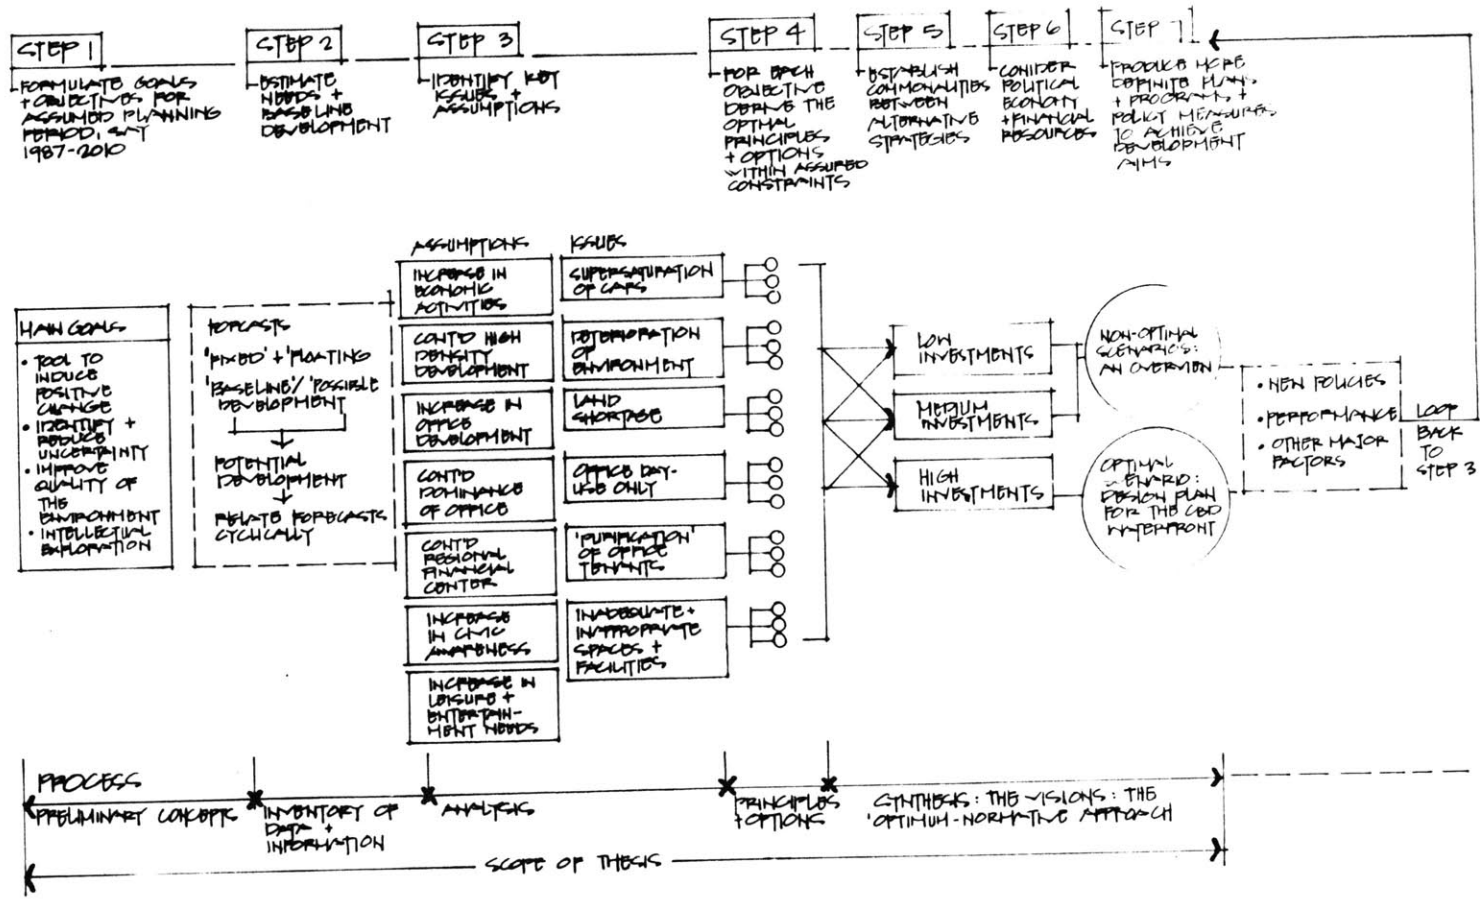 STEP 1
FORMULATE GOALS
+ OBJECTIVES FOR
ASSUMED PLANNING
PERIOD, SAY
1987-2010
STEP 2
ESTIMATE
NEEDS +
BASELINE
DEVELOPMENT
STEP 3
IDENTIFY KEY
ISSUES +
ASSUMPTIONS
STEP 4
FOR EACH
OBJECTIVE
DERIVE THE
OPTMAL
PRINCIPLES
+ OPTIONS
WITHIN ASSURED
CONSTRAINTS
STEP 5
ESTABLISH
COMMONALITIES
BETWEEN
ALTERNATIVE
STRATEGIES
STEP 6
CONIDER
POLITICAL
ECONOMY
+ FINANCIAL
RESOURCES
STEP 7
PRODUCE MORE
DEFINITE PLANS
+ PROGRAMS +
POLICY MEASURES
TO ACHIEVE
DEVELOPMENT
AIMS
MAIN GOALS
• TOOL TO
INDUCE
POSITIVE
CHANGE
• IDENTIFY +
REDUCE
UNCERTAINTY
• IMPROVE
QUALITY OF
THE
ENVIRONMENT
• INTELLECTUAL
EXPLORATION
FORCASTS
'FIXED' + 'FLOATING
'BASELINE'/'POSSIBLE
DEVELOPMENT
POTENTIAL
DEVELOPMENT
RELATE FORECASTS
CYCLICALLY
ASSUMPTIONS
INCREASE IN
ECONOMIC
ACTIVITIES
CONT'D HIGH
DENSITY
DEVELOPMENT
INCREASE IN
OFFICE
DEVELOPMENT
CONT'D
DOMINANCE
OF OFFICE
CONT'D
REGIONAL
FINANCIAL
CENTER
INCREASE
IN CIVIC
AWARENESS
INCREASE IN
LEISURE +
ENTERTAIN-
MENT NEEDS
ISSUES
SUPERSATURATION
OF CARS
DETERIORATION
OF
ENVIRONMENT
LAND
SHORTAGE
OFFICE DAY-
USE ONLY
'PURIFICATION'
OF OFFICE
TENANTS
INADEQUATE +
INAPPROPRIATE
SPACES +
FACILITIES
LOW
INVESTMENTS
MEDIUM
INVESTMENTS
HIGH
INVESTMENTS
NON-OPTIMAL
SCENARIOS:
AN OVERVIEW
OPTIMAL
SCENARIO:
DESIGN PLAN
FOR THE CBD
WATERFRONT
• NEW POLICIES
• PERFORMANCE
• OTHER MAJOR
FACTORS
LOOP
BACK
TO
STEP 3
PROCESS
PRELIMINARY CONCEPTS
INVENTORY OF
DATA +
INFORMATION
ANALYSIS
PRINCIPLES
+ OPTIONS
SYNTHESIS: THE VISIONS: THE
'OPTIMUM-NORMATIVE APPROACH
SCOPE OF THESIS